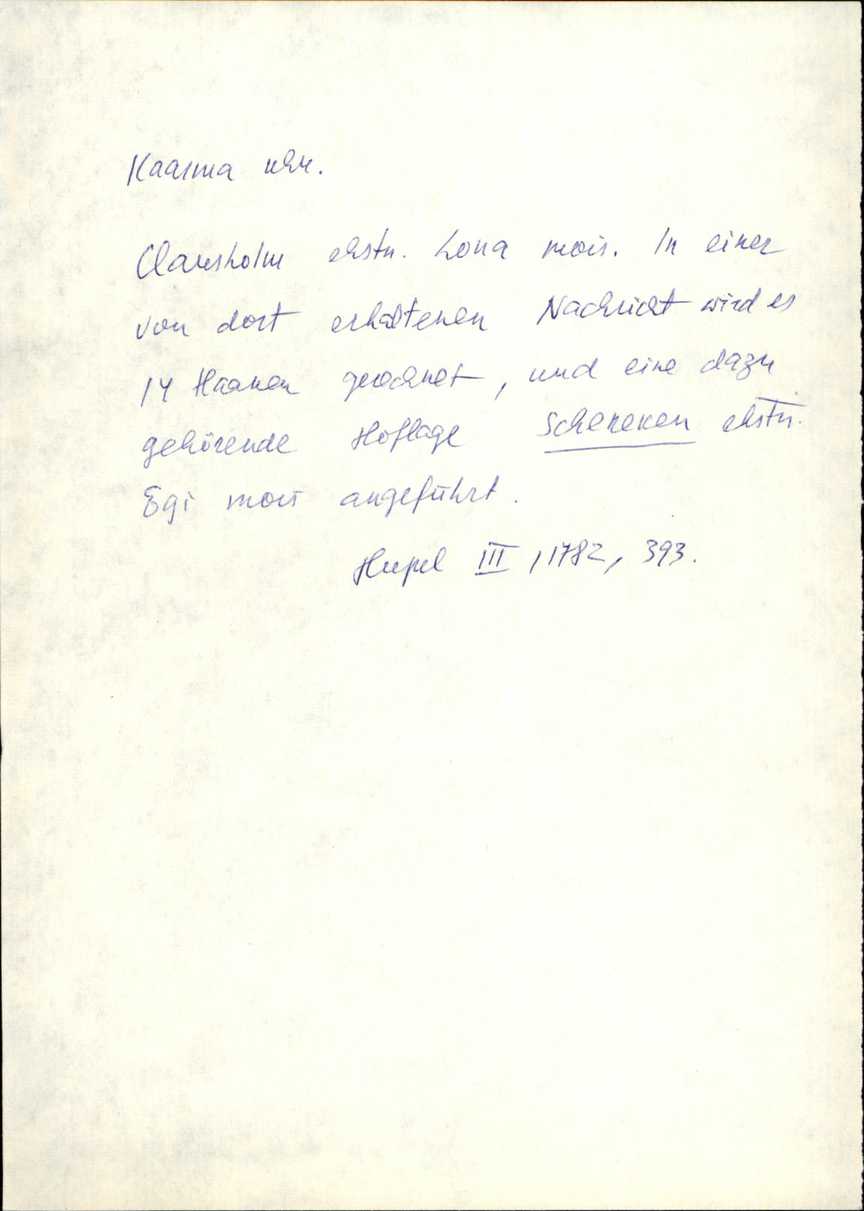 Kaarma khk.
Clausholm ehstn. Lona mois. In einer
von dort erhaltenen Nachricht wird es
14 Haaken gerechnet, und eine dazu
gehörende Hoflage Schereken ehstn.
Egi mois angeführt.
Hupel III, 1782, 393.